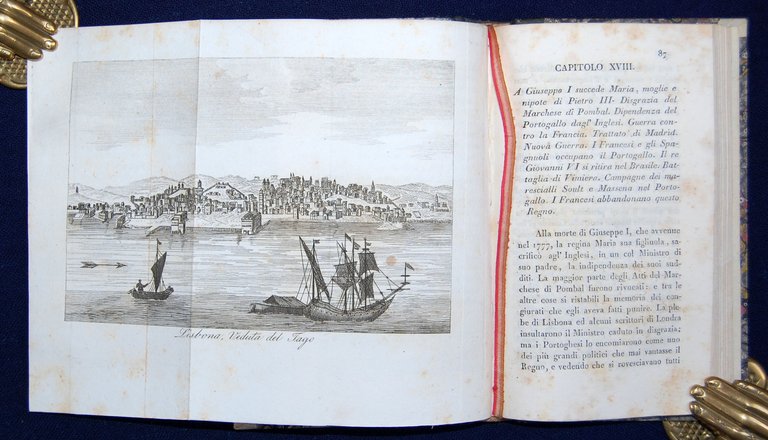 Lisbona, Veduta del Tago
87
CAPITOLO XVIII.
A Giuseppe I succede Maria, moglie e
nipote di Pietro III. Disgrazia del
Marchese di Pombal. Dipendenza del
Portogallo dagl' Inglesi. Guerra con-
tro la Francia. Trattato di Madrid.
Nuova Guerra. I Francesi e gli Spa-
gnuoli occupano il Portogallo. Il re
Giovanni VI si ritira nel Brasile. Bat-
taglia di Vimiero. Campagne dei ma-
rescialli Soult e Massena nel Porto-
gallo. I Francesi abbandonano questo
Regno.
Alla morte di Giuseppe I, che avvenne
nel 1777, la regina Maria sua figliuola, sa-
crificò agl' Inglesi, in un col Ministro di
suo padre, la indipendenza dei suoi sud-
diti. La maggior parte degli Atti del Mar-
chese di Pombal furono rivocati: e tra le
altre cose si ristabilì la memoria dei con-
giurati che egli aveva fatti punire. La ple-
be di Lisbona ed alcuni scrittori di Londra
insultarono il Ministro caduto in disgrazia;
ma i Portoghesi lo encomiarono come uno
dei più grandi politici che mai vantasse il
Regno, e vedendo che si rovesciavano tutti